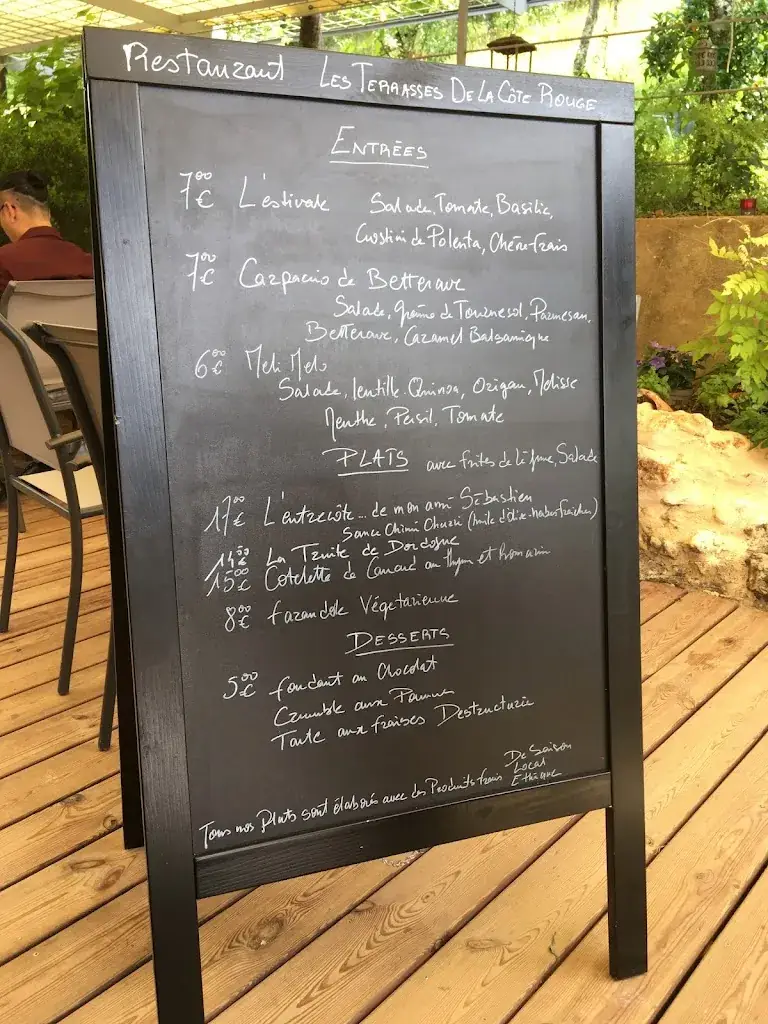 Restaurant LES TERRASSES DE LA CÔTE ROUGE
ENTRÉES
7€00 L'estivale Salade, Tomate, Basilic,
Crostini de Polenta, Chèvre frais
7€00 Carpaccio de Betterave
Salade, graine de Tournesol, Parmesan,
Betterave, Caramel Balsamique
6€00 Meli Melo
Salade, lentille, Quinoa, Origan, Melisse
Menthe, Persil, Tomate
PLATS avec frites de légume, Salade
17€00 L'entrecôte... de mon ami Sébastien
Sauce Chimi Churri (huile d'olive-herbes fraîches)
14€50 La Truite de Dordogne
15€00 Cotelette de Canard au thym et Romarin
8€00 farandole Végétarienne
DESSERTS
5€00 fondant au Chocolat
Crumble aux Pommes
Tarte aux fraises Destructurée
De Saison
Local
Ethique
Tous nos Plats sont élaborés avec des Produits frais